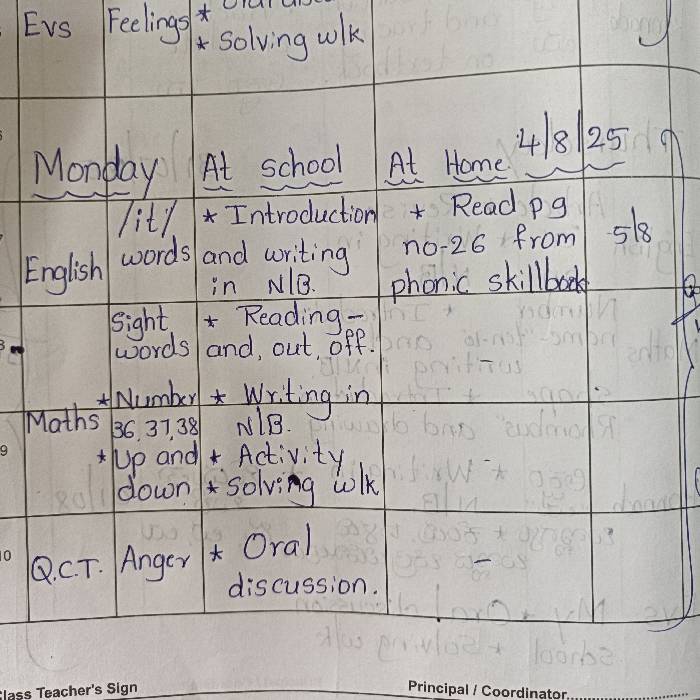 Evs Feelings *
* Solving w/k
Monday At school At Home 4/8/25
English /it/ words * Introduction and writing in N/B. * Read pg no-26 from phonic skillbook 5/8
Sight words * Reading - and, out, off.
Maths * Number 36, 37, 38 * Writing in N/B. -
* Up and down * Activity * Solving w/k -
Q.C.T. Anger * Oral discussion. -
9
10
Class Teacher's Sign Principal / Coordinator